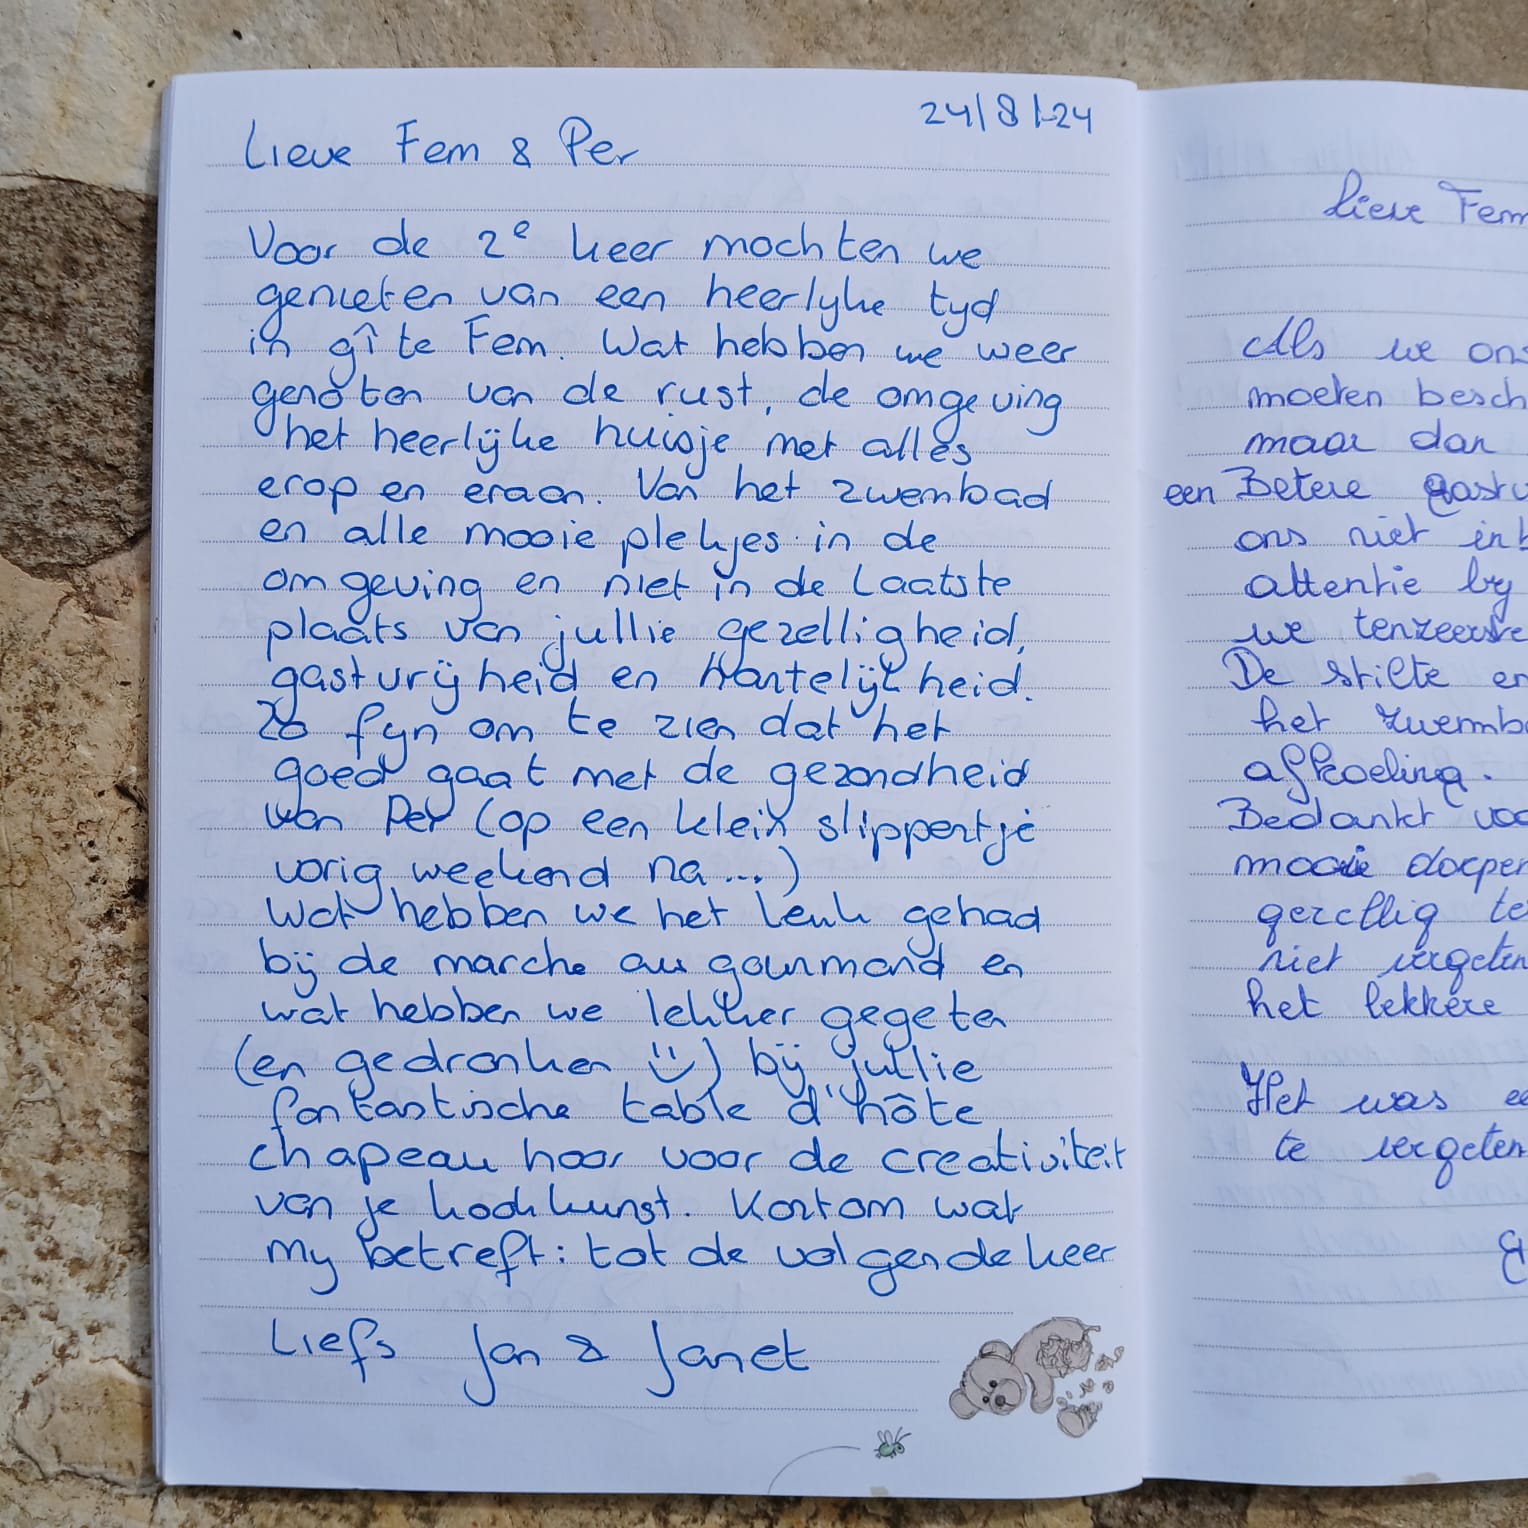 24/8/-24
Lieve Fem & Per
Voor de 2e keer mochten we
genieten van een heerlyke tyd
in gîte Fem. Wat hebben we weer
genoten van de rust, de omgeving
het heerlijke huisje met alles
erop en eraan. Van het zwembad
en alle mooie plekjes in de
omgeving en niet in de laatste
plaats van jullie gezelligheid,
gastvrijheid en hartelijkheid.
Zo fyn om te zien dat het
goed gaat met de gezondheid
van Per (op een klein slippertje
vorig weekend na...)
Wat hebben we het leuk gehad
bij de marche au gourmand en
wat hebben we lekker gegeten
(en gedronken ☺) bij jullie
fantastische table d'hôte
chapeau hoor voor de creativiteit
van je kookkunst. Kortom wat
my betreft: tot de volgende keer
Liefs Jan & Janet
Lieve Fem
Als we ons
moeten besch
maar dan
een Betere gastv
ons niet inb
attentie by
we tenzeerste
De stilte en
het zwemba
afkoeling.
Bedankt voo
mooie dorpen
gezellig te
niet vergeten
het lekkere
Het was ee
te vergeten